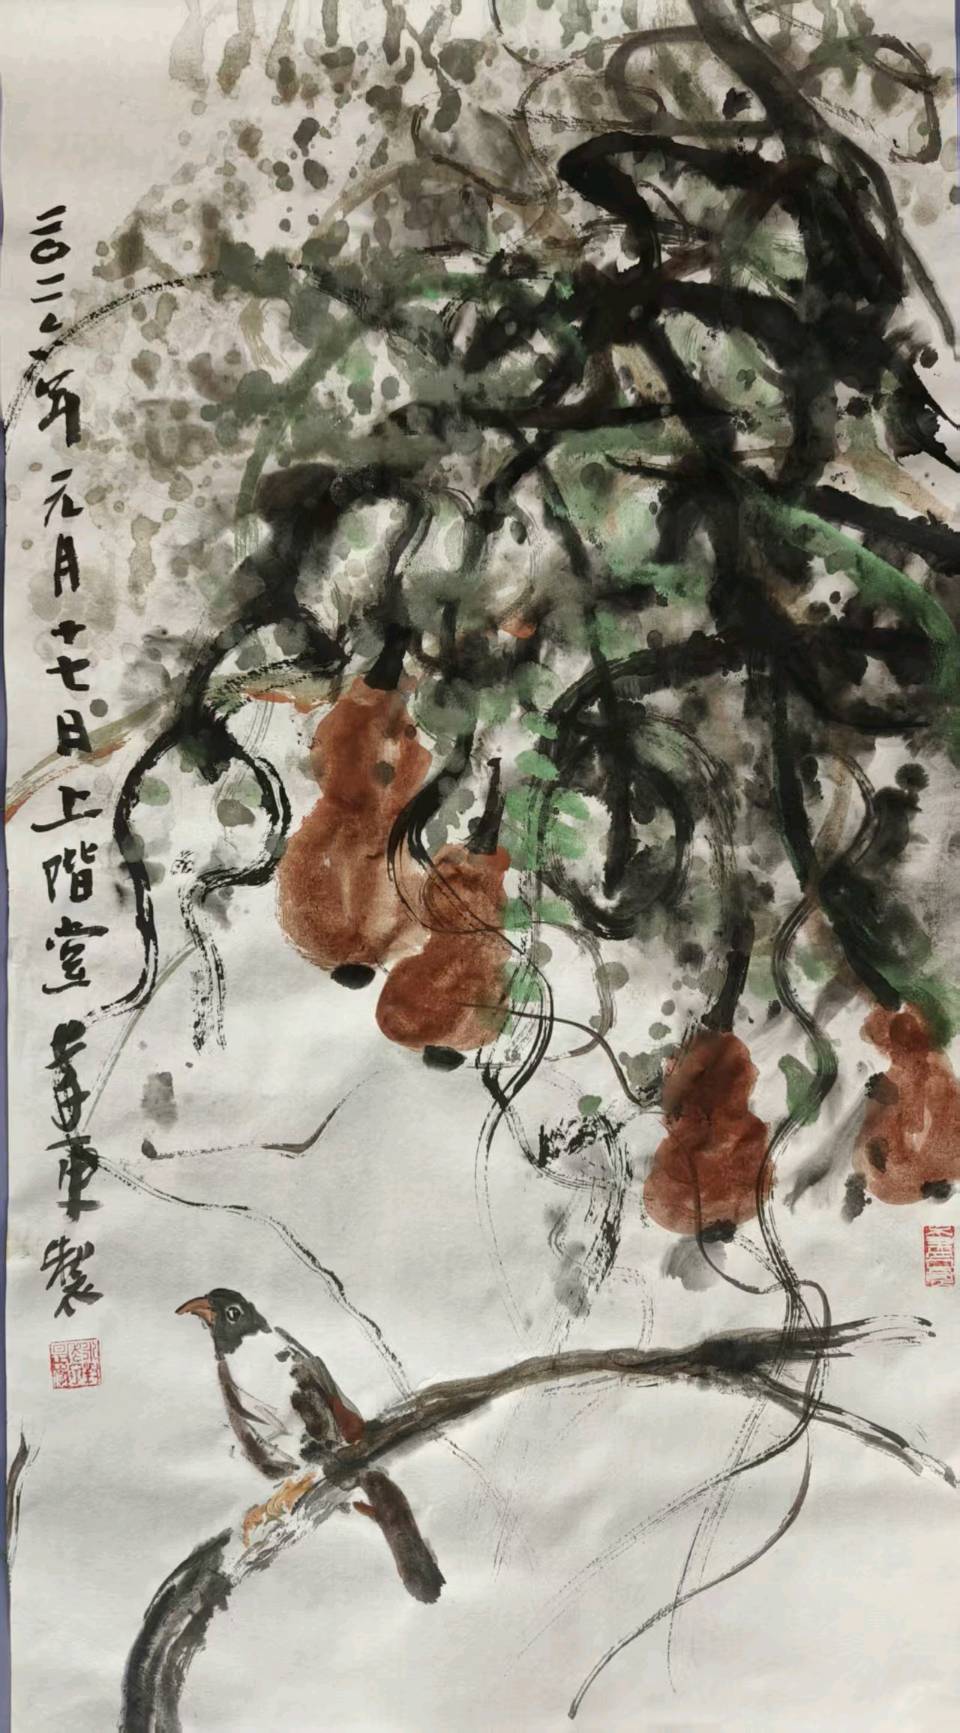 二〇二二年元月十七日上階堂東製